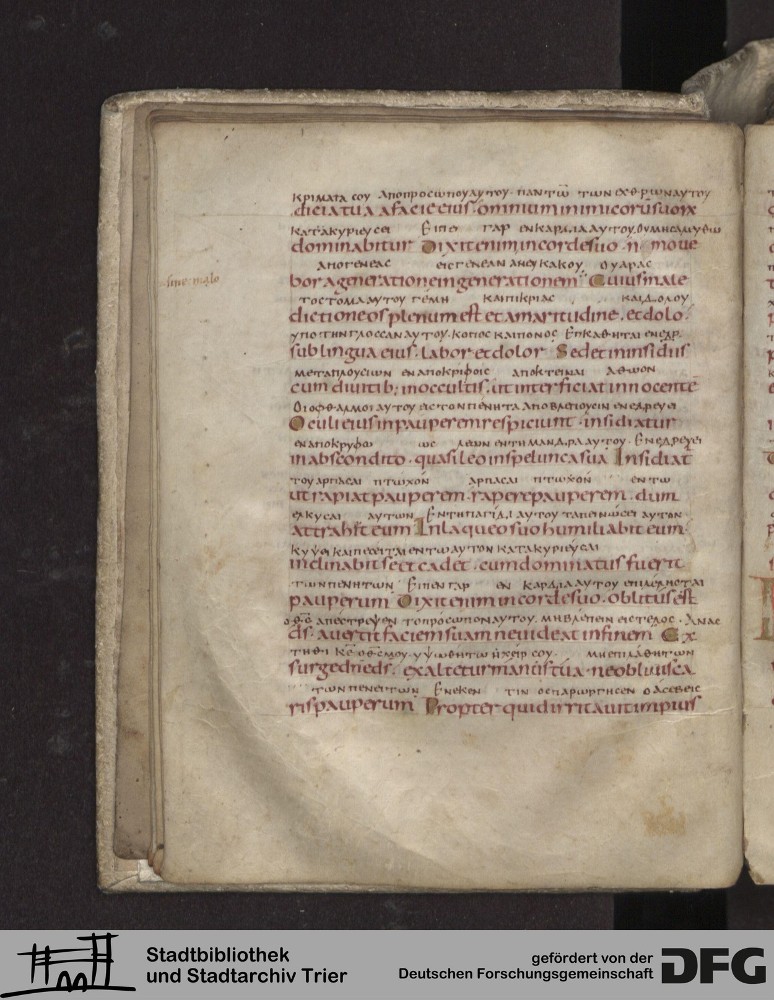 ΚΡΙΜΑΤΑ ΣΟΥ ΑΠΟΠΡΟΣΩΠΟΥΑΥΤΟΥ· ΠΑΝΤΩ̅ ΤΩΝΕΧΘΡΩΝΑΥΤΟΥ
diciatua afacieeius· omniuminimicorūsuorū
ΚΑΤΑΚΥΡΙΕΥΣΕΙ ΕΙΠΕΙ ΓΑΡ ΕΝΚΑΡΔΙΑΑΥΤΟΥ·ΟΥΜΗΣΑΛΥΘΩ
dominabitur Dixitenimincordesuo· n̄ moue
ΑΠΟΓΕΝΕΑΣ ΕΙΣΓΕΝΕΑΝ ΑΝΕΥΚΑΚΟΥ ΟΥΑΡΑΣ
sine malo
boragenerationeingenerationem Cuiusmale
ΤΟΣΤΟΜΑΑΥΤΟΥ ΓΕΜΗ ΚΑΙΠΙΚΡΙΑΣ ΚΑΙΔΟΛΟΥ
dictioneosplenumest etamaritudine· etdolo·
ΥΠΟΤΗΝΓΛΟΣΣΑΝΑΥΤΟΥ· ΚΟΠΟΣ ΚΑΙΠΟΝΟΣ ΕΠΚΑΘΗΤΑΙ ΕΝΕΔΡ
sublingua eius· labor etdolor Sedetininsidiis
ΜΕΤΑΠΛΟΥΣΙΩΝ ΕΝΑΠΟΚΡΙΦΟΙΣ ΑΠΟΚΤΕΙΝΑΙ ΑΘΩΟΝ
cum diuitib; inoccultis· utinterficiat innocentē
ΟΙΟΦΘΑΛΜΟΙΑΥΤΟΥ ΕΙΣΤΟΝΠΕΝΗΤΑ ΑΠΟΒΛΕΠΟΥΣΙΝ ΕΝΕΔΡΕΥΕΙ
Oculieiusinpauperemrespiciunt· insidiatur
ΕΝΑΠΟΚΡΥΦΩ ΩΣ ΛΕΩΝ ΕΝΤΗΜΑΝΔΡΑΑΥΤΟΥ· ΕΝΕΔΡΕΥΕΙ
inabscondito· quasileoinspeluncasua Insidiat
ΤΟΥΑΡΠΑΣΑΙ ΠΤΩΧΟΝ ΑΡΠΑΣΑΙ ΠΤΩΧΟΝ ΕΝΤΩ
utrapiatpauperem· raperepauperem· dum
ΕΛΚΥΣΑΙ ΑΥΤΩΝ ΕΝΤΗΠΑΓΙΔΙΑΥΤΟΥ ΤΑΠΕΙΝΩΣΕΙ ΑΥΤΟΝ
attrahit eum Inlaqueosuohumiliabit eum·
ΚΥΨΕΙ ΚΑΙΠΕΣΕΙΤΑΙ ΕΝΤΩΑΥΤΟΝ ΚΑΤΑΚΥΡΙΕΥΣΑΙ
inclinabitseetcadet· cumdominatusfuerit
ΤΩΝΠΕΝΗΤΩΝ ΕΙΠΕΝΓΑΡ ΕΝ ΚΑΡΔΙΑΑΥΤΟΥ ΕΠΙΛΕΛΗΣΤΑΙ
pauperum Dixitenimincordesuo· oblitusest
Ο Θ̅Σ̅ ΑΠΕΣΤΡΕΨΕΝ ΤΟΠΡΟΣΩΠΟΝΑΥΤΟΥ· ΜΗΒΛΕΠΕΙΝ ΕΙΣΤΕΛΟΣ· ΑΝΑΣ
d̄s· auertitfaciemsuam neuideat infinem Ex
ΤΗΘΙ Κ̅Ε̅ ΟΘΣΜΟΥ· ΥΨΩΘΗΤΩ ΗΧΕΙΡ ΣΟΥ· ΜΗΕΠΙΛΑΘΗΤΩΝ
surgednēds· exalteturmanustua· neobliuisca
ΤΩΝΠΕΝΕΙΤΩΝ ΕΝΕΚΕΝ ΤΙΝ ΟΣΠΑΡΩΡΓΗΣΕΝ ΟΑΣΕΒΕΙΣ
rispauperum Propter quidirritauitimpius
Stadtbibliothek
und Stadtarchiv Trier
gefördert von der
Deutschen Forschungsgemeinschaft
DFG